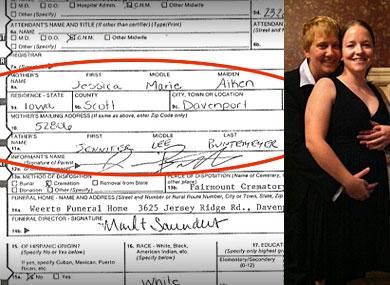 D.O. Hospital Admin. Other Midwife
Other (Specify)
ATTENDANT'S NAME AND TITLE (If other than certifier) (Type/Print)
Name
M.D. D.O. C.N.M. Other Midwife
Other (Specify)
REGISTRAR
MOTHER'S NAME FIRST MIDDLE MAIDEN
8a. Jessica Marie Aiken
RESIDENCE - STATE COUNTY CITY, TOWN OR LOCATION
9a. Iowa 9b. Scott 9c. Davenport
MOTHER'S MAILING ADDRESS (If same as above, enter Zip Code only)
10. 52806
FATHER'S NAME FIRST MIDDLE LAST
11a. JENNIFER LEE BUNTEMEYER
INFORMANT'S NAME
(Signature of Parent
METHOD OF DISPOSITION PLACE OF DISPOSITION (Name of Cemetery,
Burial Cremation Removal from State
Donation Other (Specify) 13b. Fairmount Crematory
FUNERAL HOME - NAME AND ADDRESS (Street and Number or Rural Route Number, City or Town, State, Zip
Weerts Funeral Home 3625 Jersey Ridge Rd., Daven
FUNERAL DIRECTOR - SIGNATURE
15. OF HISPANIC ORIGIN? 16. RACE - White, Black, American Indian, etc. 17. EDUCA
(Specify No or Yes below)
If yes, specify Cuban, Mexican, Puerto Rican, etc. (Specify below) Elementary/Secondary (0-12)
No Yes
White